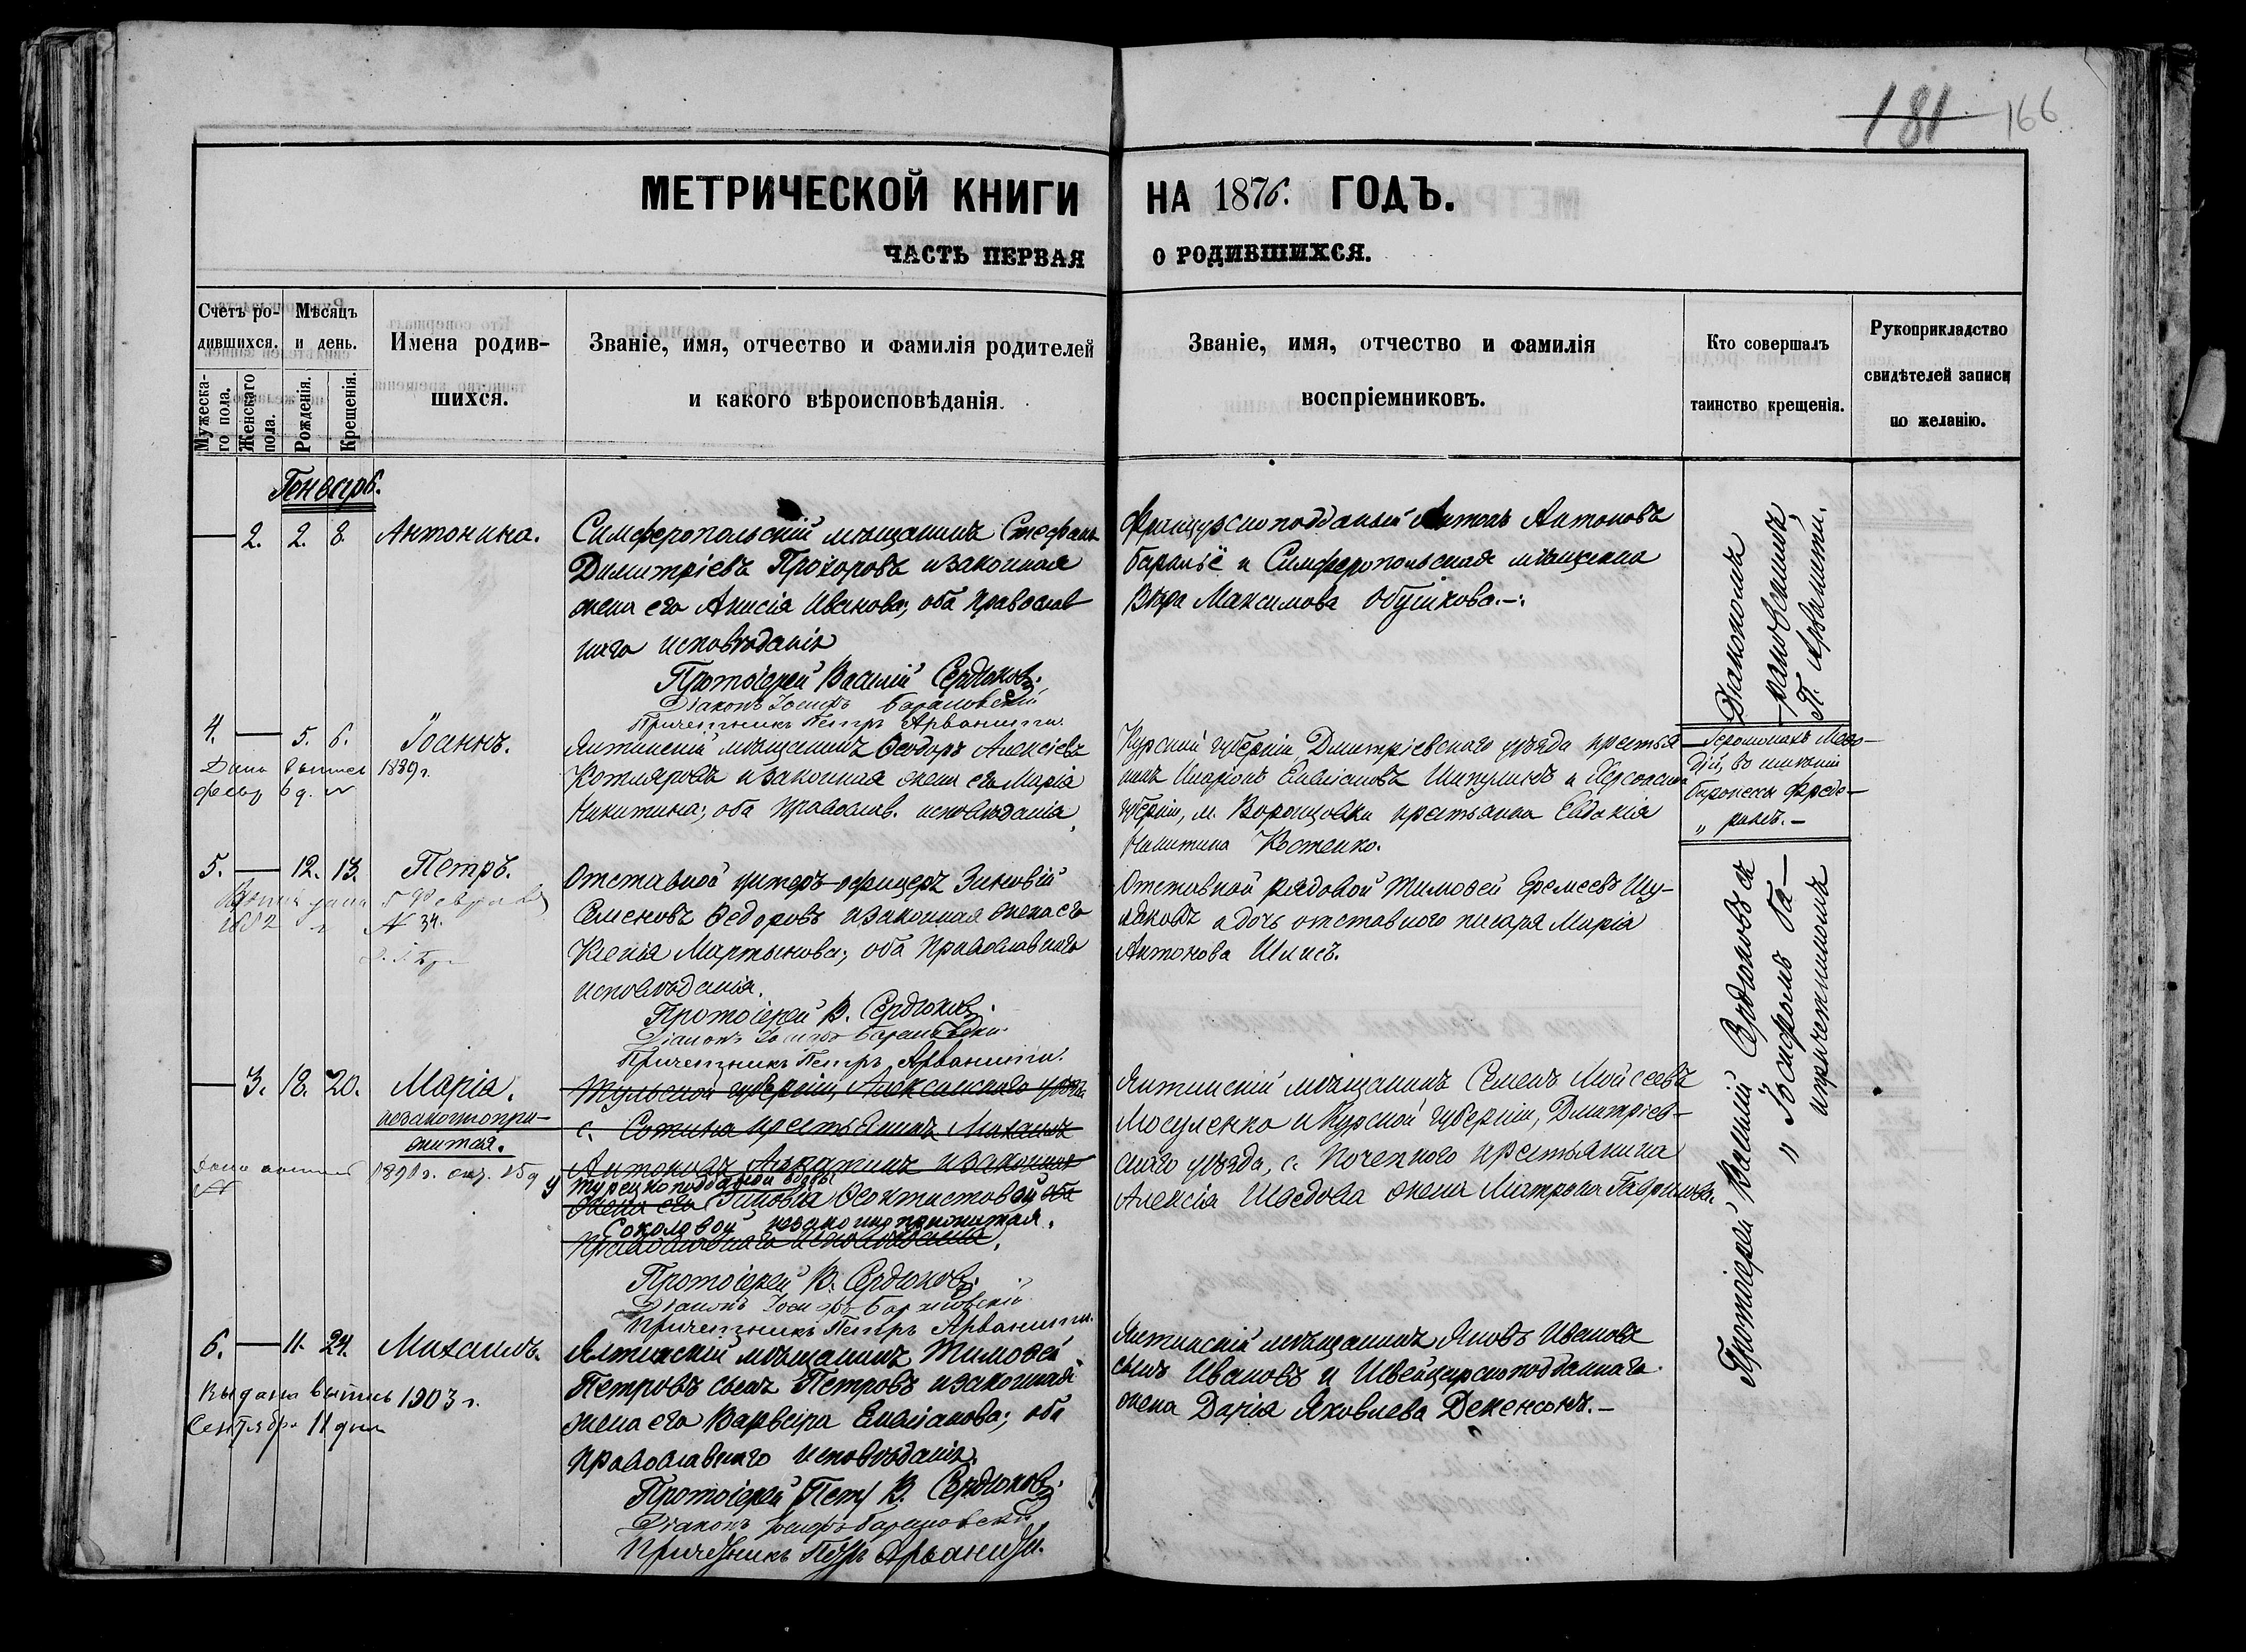 181 166
МЕТРИЧЕСКОЙ КНИГИ НА 1876. ГОДЪ.
ЧАСТЬ ПЕРВАЯ О РОДИВШИХСЯ.
Счетъ ро-
дившихся.
Мужеска-
го пола.
Женскаго
пола.
Мѣсяцъ
и день.
Рожденія.
Крещенія.
Имена родив-
шихся.
Званіе, имя, отчество и фамилія родителей
и какого вѣроисповѣданія.
Званіе, имя, отчество и фамилія
воспріемниковъ.
Кто совершалъ
таинство крещенія.
Рукоприкладство
свидѣтелей записи
по желанію.
Генварь.
— 2. 2. 8. Антонина.
Симферопольскій мѣщанинъ Стефанъ
Димитріевъ Прохоровъ и законная
жена его Анисія Иванова; оба православ
наго исповѣданія
Протоіерей Василій Сердюковъ.
Діаконъ Іосифъ Барановскій
Причетникъ Петръ Арванити.
Французскоподданый Антонъ Антоновъ
Бараньё и Симферопольская мѣщанка
Вѣра Максимова Обушкова.—:
Діакономъ
рановскимъ
П. Арванити.
4. — 5. 6. Іоаннъ.
Дана выпись 1889 г.
Ялтинскій мѣщанинъ Ѳеодоръ Алексіевъ
Котляровъ и законная жена его Марія
Никитина; оба православ. исповѣданія
Курской губерніи, Дмитріевскаго уѣзда крестья
нинъ Иларіонъ Емиліановъ Шипулинъ и Херсонской
губерніи, м. Воронцовки крестьянка Евдокія
Никитина Костенко.
Іеромонахъ Меѳо-
дій, въ имѣніи
баронессы Фреде-
„ риксъ.—
5. — 12. 13. Петръ.
5 Февраля
N 34.
Отставной унтеръ-офицеръ Зиновій
Семеновъ Ѳедоровъ и законная жена его
Ксенія Мартынова; оба православнаго
исповѣданія.
Протоіерей В. Сердюковъ.
Діаконъ Іосифъ Барановскій.
Причетникъ Петръ Арванити.
Отставной рядовой Тимоѳей Еремеевъ Шу-
ляковъ и дочь отставного писаря Марія
Антонова Шлисъ.
— 3. 18. 20. Марія.
незаконнопри-
житая.
Дана выпись 1890 г. окт. 15 д
Тульской губерніи, Алексинскаго уѣзда
с. Сотина крестьянинъ Михаилъ
Антоновъ Алкатинъ и законная
у турецкоподданой вдовы
жена его Зиновія Ѳеоктистовой оба
Соколовой незаконноприжитая.
православнаго исповѣданія.
Протоіерей В. Сердюковъ.
Діаконъ Іосифъ Барановскій
Причетникъ Петръ Арванити.
Ялтинскій мѣщанинъ Семенъ Мойсеевъ
Мосуленко и Курской губерніи, Дмитріев-
скаго уѣзда, с. Почепного крестьянина
Алексія Шведова жена Матрона Гаврилова.
6. — 11. 24. Михаилъ.
Выдана выпись 1903 г.
Сентября 11 дня
Ялтинскій мѣщанинъ Тимоѳей
Петровъ сынъ Петровъ и законная
жена его Варвара Емиліанова; оба
православнаго исповѣданія.
Протоіерей Петр В. Сердюковъ.
Діаконъ Іосифъ Барановскій
Причетникъ Петръ Арванити.
Ялтинскій мѣщанинъ Яковъ Ивановъ
сынъ Ивановъ и Швейцарскоподданнаго
жена Дарія Яковлева Декенсонъ.—
Протоіерей Василій Сердюковъ съ
„ Іосифомъ Ба—
и причетникомъ